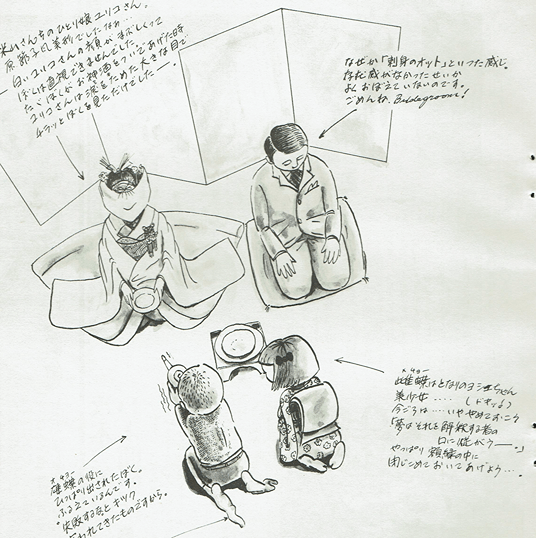 米山さんちのひとり娘ユリコさん。
原節子風美形でしたなぁ…
白いユリコさんの顔がまぶしくって
ぼくは直視できませんでした。
ただぼくがお神酒をついであげた時
ユリコさんは涙をためた大きな目で
チラッとぼくを見ただけでした——。
なぜか「刺身のオット」といった感じ。
存在感がなかったせいか
よくおぼえていないのです。
ごめんね、Bridegroom!
メチョー
雌蝶はとなりのヨシエちゃん
美少女……
今ごろは……いややめておこう
「夢はそれを解放する者の
口に苦がう——。」
やっぱり 額縁の中に
閉じこめておいてあげよう…。
オチョー
雄蝶の役に
ひっぱり出されたぼく。
ふるえているんです。
"失敗するなとキツク
われてきたものですから。